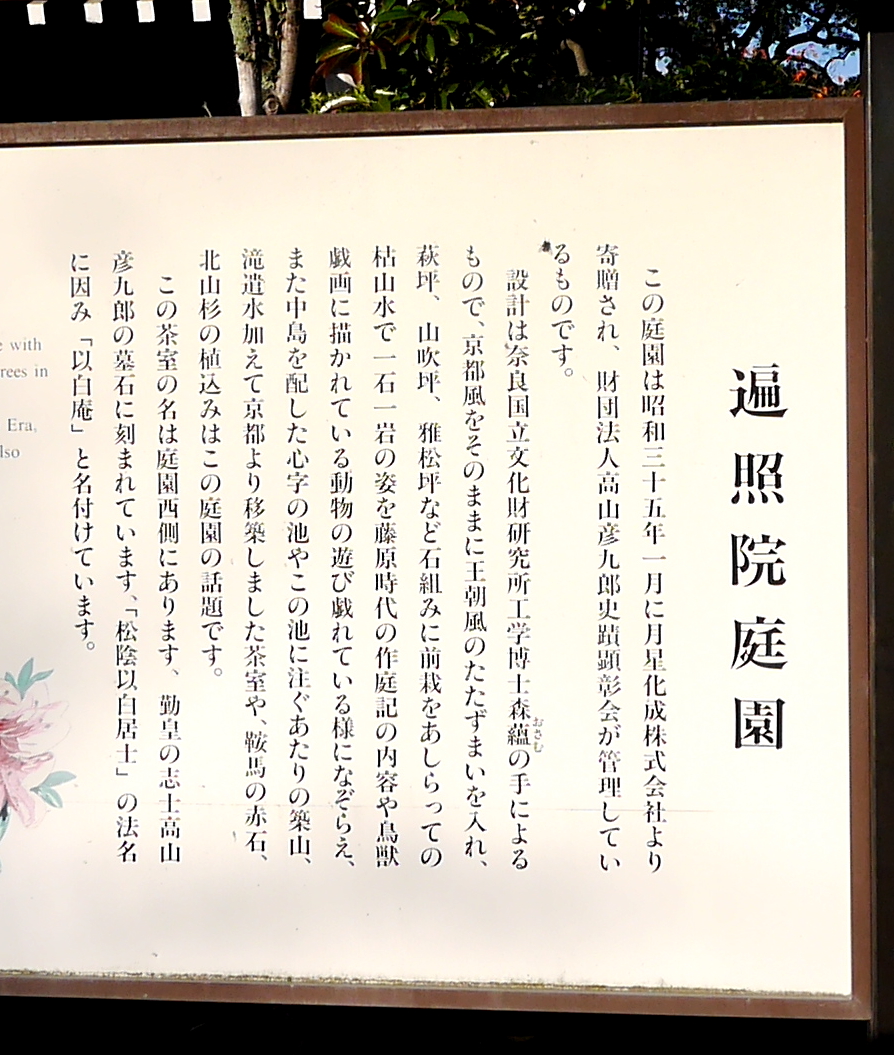 遍照院庭園
この庭園は昭和三十五年一月に月星化成株式会社より
寄贈され、財団法人高山彦九郎史蹟顕彰会が管理してい
るものです。
設計は奈良国立文化財研究所工学博士森蘊の手による
おさむ
もので、京都風をそのままに王朝風のたたずまいを入れ、
萩坪、山吹坪、雅松坪など石組みに前栽をあしらっての
枯山水で一石一岩の姿を藤原時代の作庭記の内容や鳥獣
戯画に描かれている動物の遊び戯れている様になぞらえ、
また中島を配した心字の池やこの池に注ぐあたりの築山、
滝遣水加えて京都より移築しました茶室や、鞍馬の赤石、
北山杉の植込みはこの庭園の話題です。
この茶室の名は庭園西側にあります、勤皇の志士高山
彦九郎の墓石に刻まれています、「松陰以白居士」の法名
に因み「以白庵」と名付けています。
with
rees in
Era,
lso